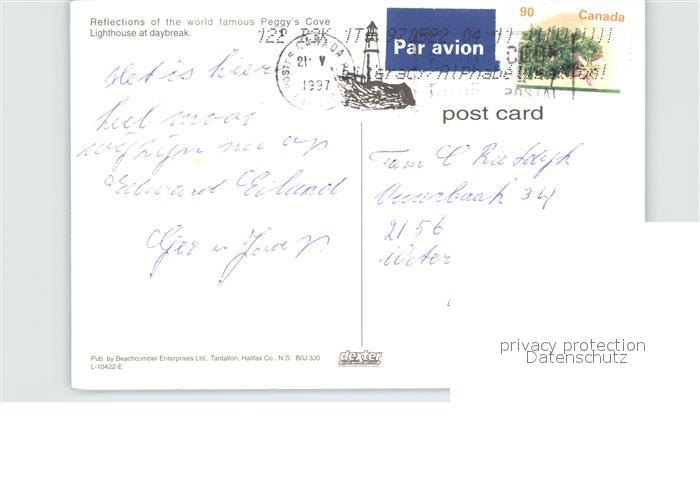 Reflections of the world famous Peggy's Cove
Lighthouse at daybreak.
Het is hier
heel mooi
wij zijn nu op
Edward Eiland
Ger en Jaap
Pub. by Beachcomber Enterprises Ltd., Tantallon, Halifax Co., N.S. B0J 3J0
L-10422-E
dexter
POSTES CANADA
21 V
1997
Par avion
90 Canada
CODE
POSTAL
post card
Fam C
34
2156
Weter
privacy protection
Datenschutz